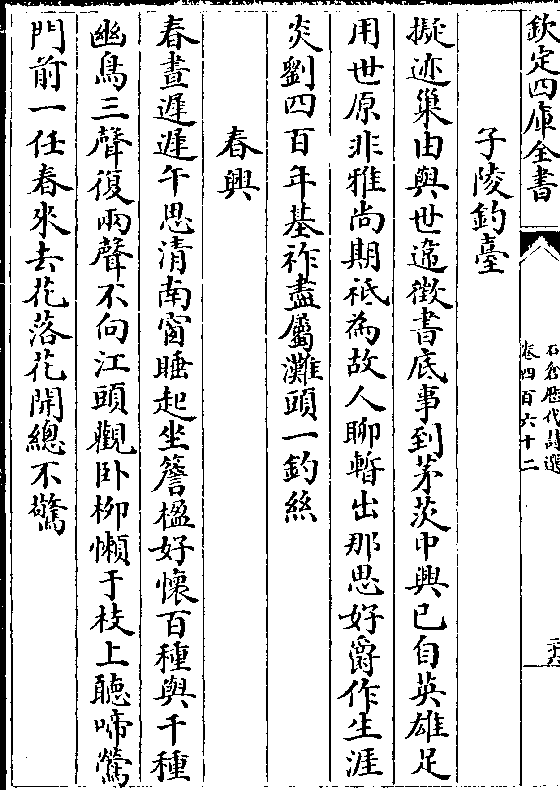 欽定四庫全書
石倉歷代詩選
卷四百六十二
子陵釣臺
擬迹巢由與世違徵書底事到茅茨中興已自英雄足
用世原非雅尚期祇為故人聊暫出那思好爵作生涯
炎劉四百年基祚盡屬灘頭一釣絲
春興
春晝遲遲午思清南窗睡起坐簷楹好懷百種與千種
幽鳥三聲復兩聲不向江頭觀卧柳懶于枝上聽啼鶯
門前一任春來去花落花開總不驚